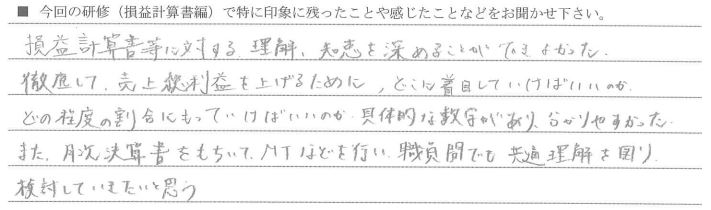 ■ 今回の研修（損益計算書編）で特に印象に残ったことや感じたことなどをお聞かせ下さい。
損益計算書等に対する、理解、知恵を深めることができよかった。
徹底して、売上総利益を上げるために、どこに着目していけばいいのか
どの程度の割合にもっていけばいいのか、具体的な数字があり、分かりやすかった。
また、月次決算書をもちいて、MTなどを行い、職員間でも共通理解を図り、
検討していきたいと思う